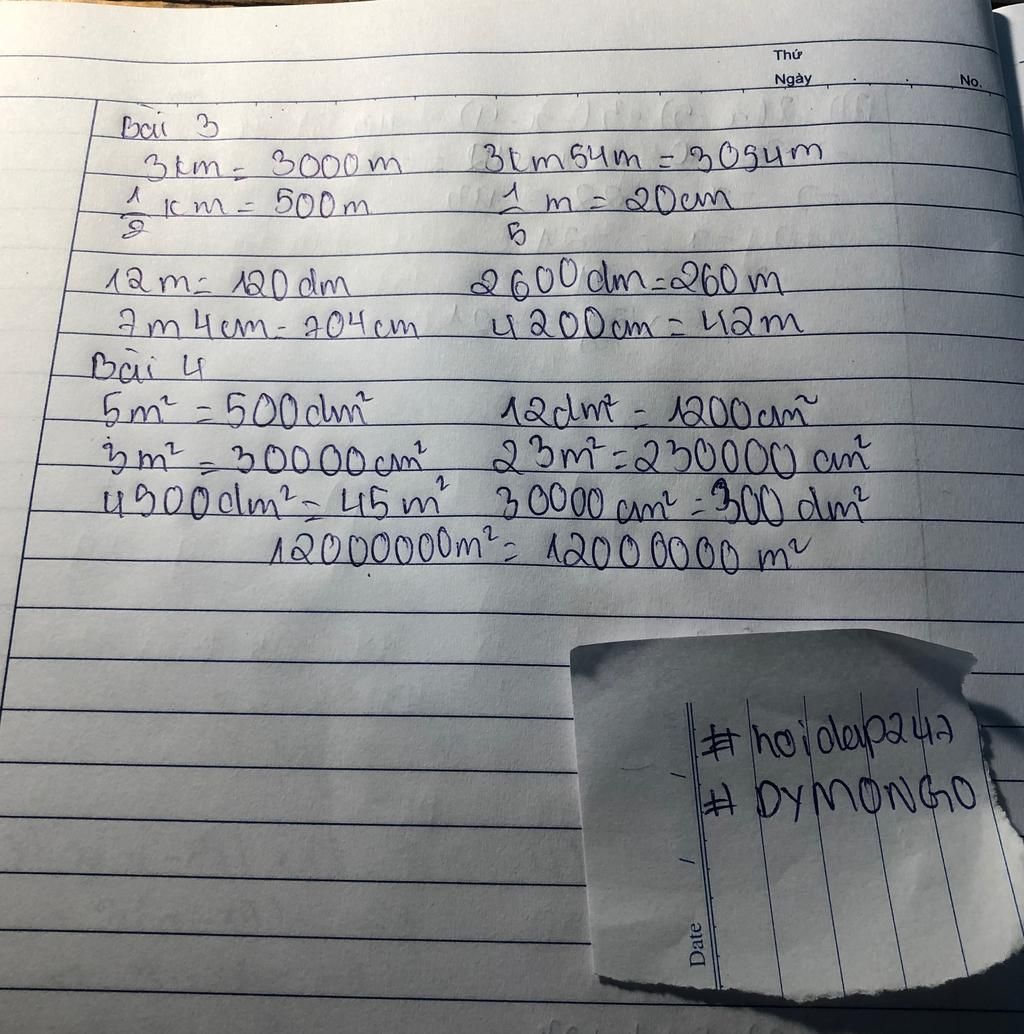 Thứ
Ngày No.
Bài 3
3km = 3000m 3km54m = 3054m
1/2 km = 500m 1/5 m = 20cm
12m = 120dm 2600dm = 260m
7m4cm = 704cm 4200cm = 42m
Bài 4
5m² = 500dm² 12dm² = 1200cm²
3m² = 30000cm² 23m² = 230000cm²
4500dm² = 45m² 30000cm² = 300dm²
12000000m² = 12000000m²
# hoidap247
# DYMONGO
Date